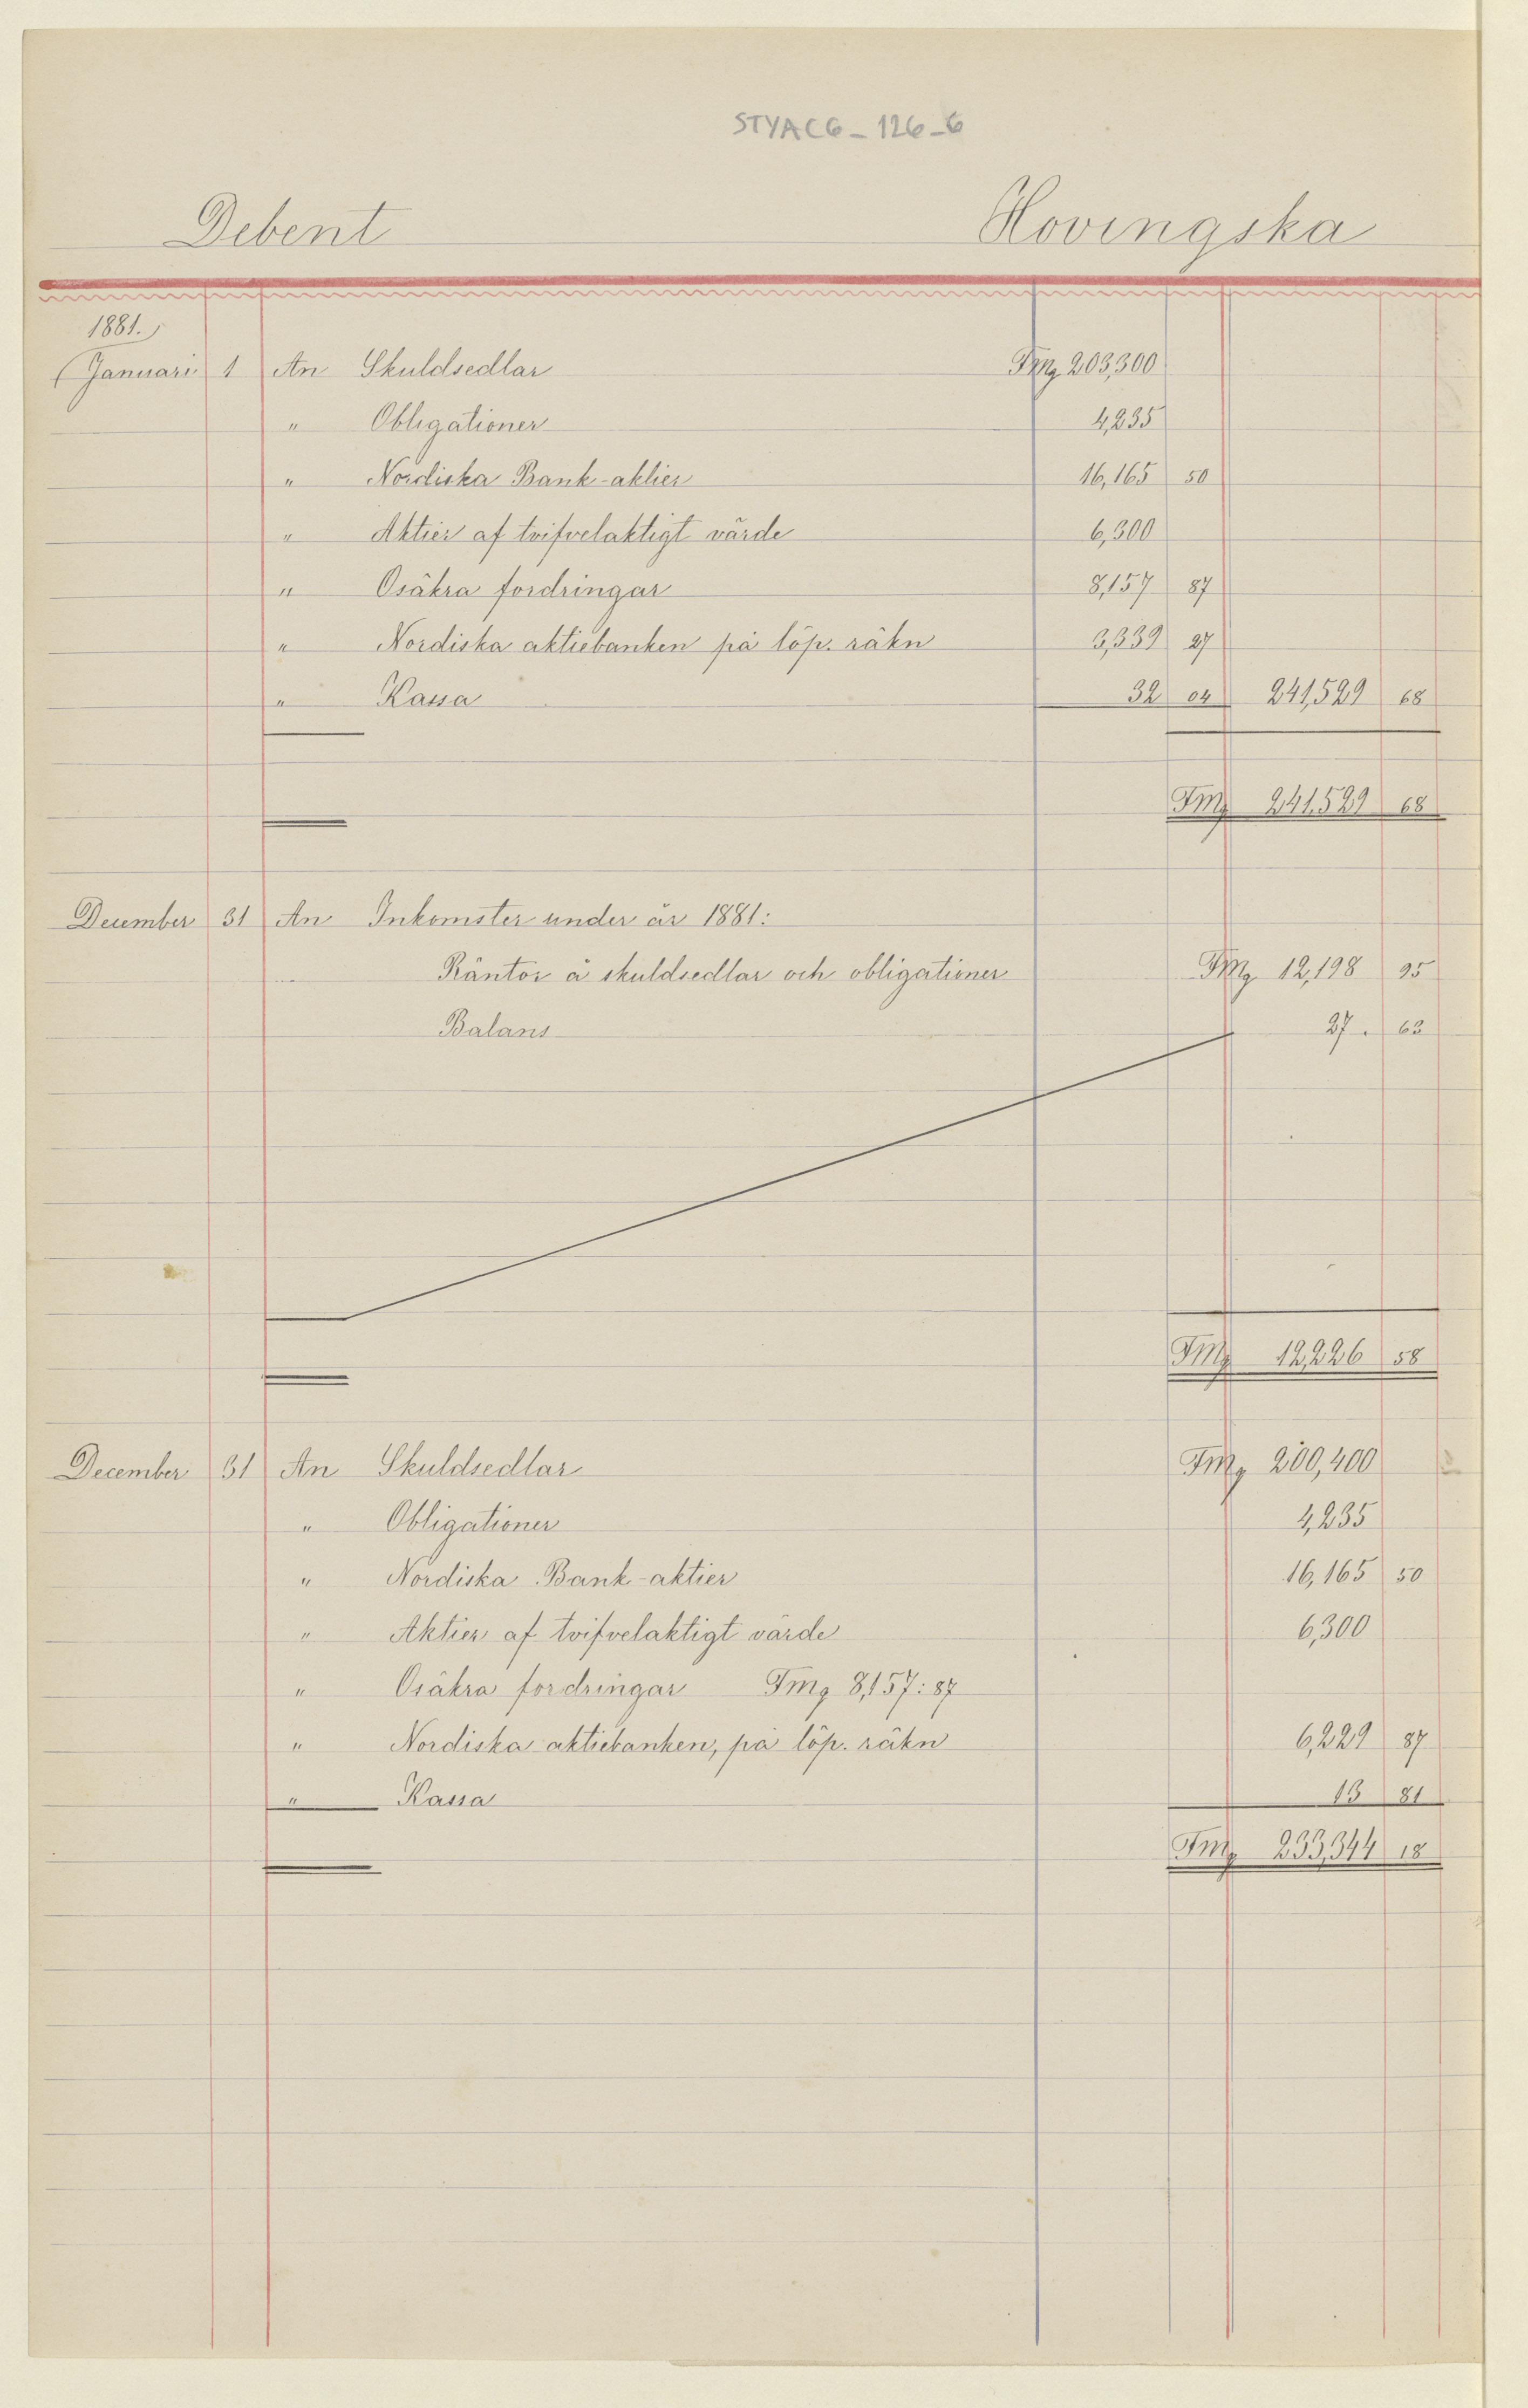 STYAC6_126_6
Debent Hovingska
1881.
Januari 1 An Skuldsedlar Fmg 203,300
" Obligationer 4,235
" Nordiska Bank-aktier 16,165 50
" Aktier af tvifvelaktigt värde 6,300
" Osäkra fordringar 8,157 87
" Nordiska aktiebanken på löp. räkn 3,339 27
" Kassa 32 04 241,529 68
Fmg 241,529 68
December 31 An Inkomster under år 1881:
Räntor å skuldsedlar och obligationer Fmg 12,198 95
Balans 27. 63
Fmg 12,226 58
December 31 An Skuldsedlar Fmg 200,400
" Obligationer 4,235
" Nordiska Bank-aktier 16,165 50
" Aktier af tvifvelaktigt värde 6,300
" Osäkra fordringar Fmg 8,157:87
" Nordiska aktiebanken, på löp. räkn 6,229 87
" Kassa 13 81
Fmg 233,344 18